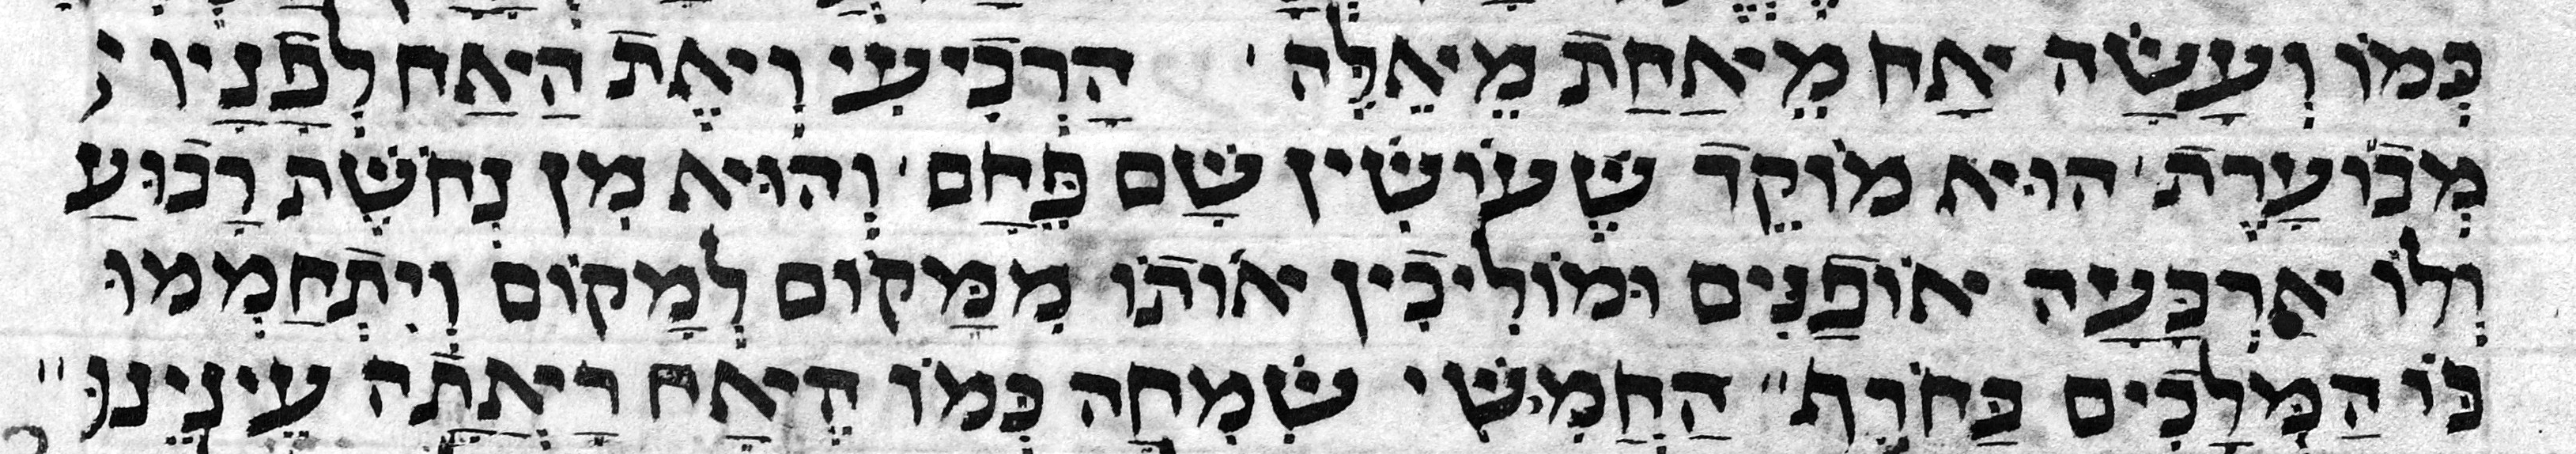 כְּמוֹ וְעָשָׂה אָח מֵאַחַת מֵאֵלֶּה׳ הָרְבִיעִי וְאֶת הַאַח לְפָנָיו
מְבוֹעָרֶת׳ הוּא מוֹקֵד שֶׁעוֹשִׂין שָׁם פֶּחָם׳ וְהוּא מִן נְחֹשֶׁת רָבוּעַ
וְלוֹ אַרְבָּעָה אוֹפַנִּים וּמוֹלִיכִין אוֹתוֹ מִמָּקוֹם לְמָקוֹם וְיִתְחַמְמוּ
בּוֹ הַמְּלָכִים בַּחוֹרֶף׳׳ הַחֲמִשִּׁי שִׂמְחָה כְּמוֹ הֶאָח רָאֲתָה עֵינֵינוּ׳׳